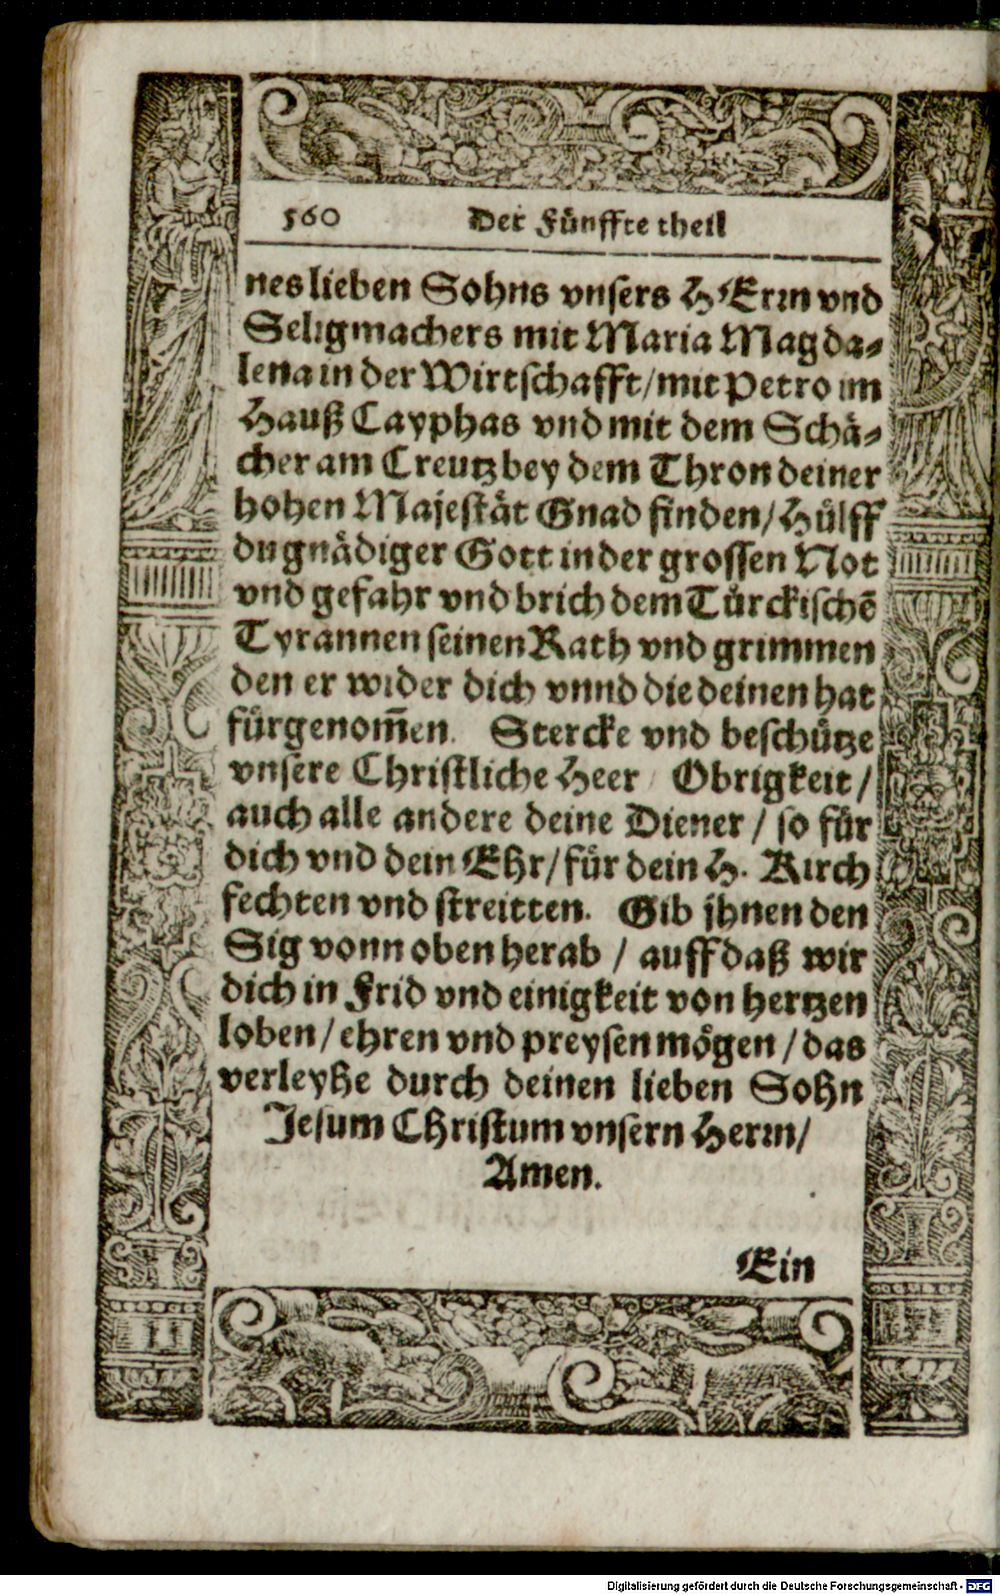 560 Der Fünffte theil
nes lieben Sohns vnsers HErrn vnd
Seligmachers mit Maria Magda-
lena in der Wirtschafft/ mit Petro im
Hauß Cayphas vnd mit dem Schä-
cher am Creutz bey dem Thron deiner
hohen Majestät Gnad finden/ Hülff
du gnädiger Gott in der grossen Not
vnd gefahr vnd brich dem Türckischẽ
Tyrannen seinen Rath vnd grimmen
den er wider dich vnnd die deinen hat
fürgenom̃en. Stercke vnd beschütze
vnsere Christliche Heer / Obrigkeit /
auch alle andere deine Diener / so für
dich vnd dein Ehr/ für dein H. Kirch
fechten vnd streitten. Gib jhnen den
Sig vonn oben herab / auff daß wir
dich in Frid vnd einigkeit von hertzen
loben/ ehren vnd preysen mögen / das
verleyhe durch deinen lieben Sohn
Jesum Christum vnsern Herrn/
Amen.
Ein
Digitalisierung gefördert durch die Deutsche Forschungsgemeinschaft - DFG